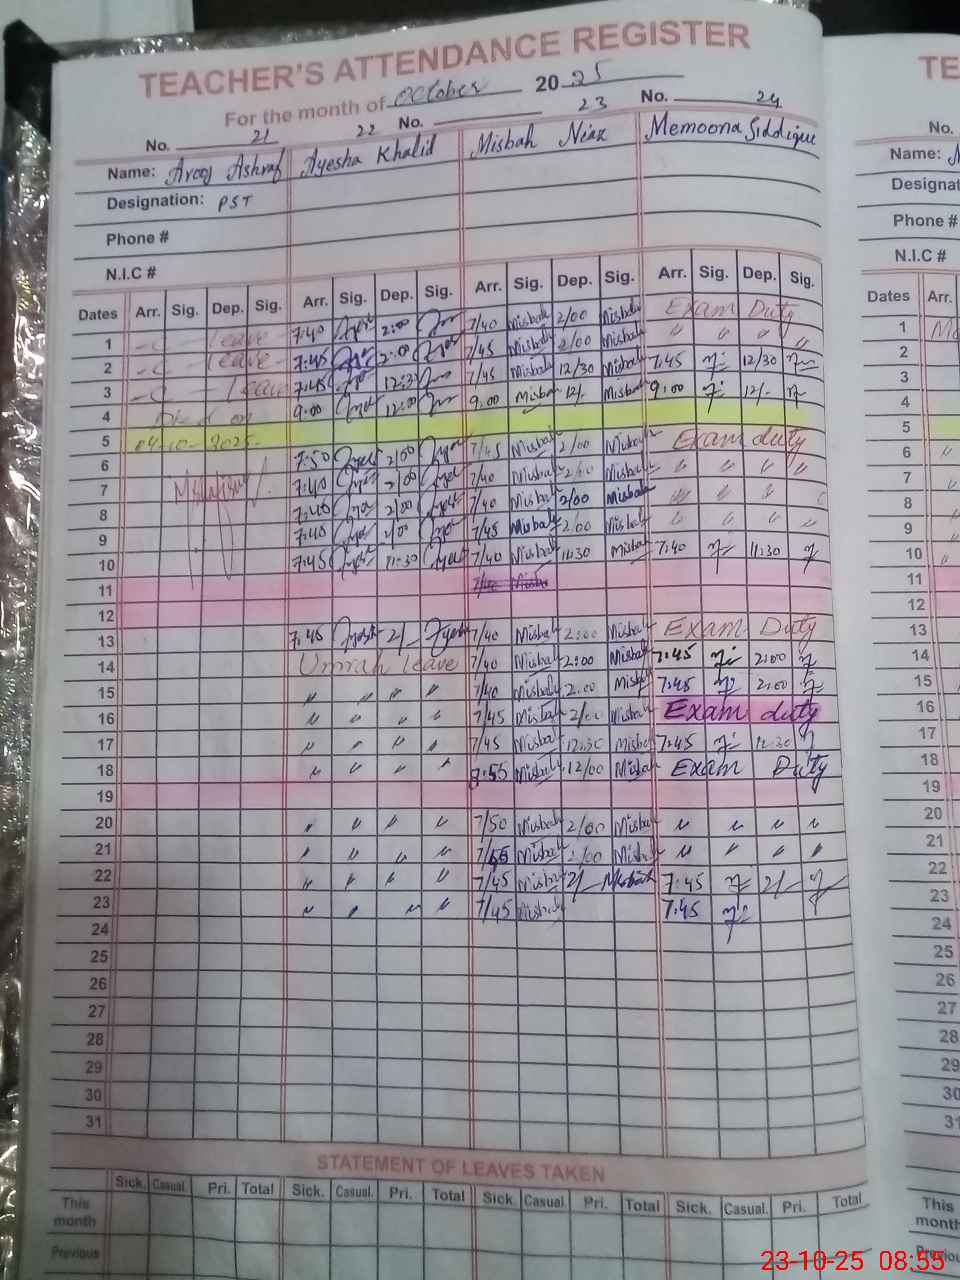 TEACHER'S ATTENDANCE REGISTER
For the month of October 2025
No. 21 22 No. 23 No. 24
Name: Arooj Ashraf Ayesha Khalid Misbah Niaz Memoona Siddique
Designation: PST
Phone #
N.I.C #
Dates Arr. Sig. Dep. Sig. Arr. Sig. Dep. Sig. Arr. Sig. Dep. Sig. Arr. Sig. Dep. Sig.
1 -C- Leave 7:40 2:00 7/40 Misbah 2/00 Misbah Exam Duty
2 -C- Leave - 7:45 2:00 7/45 Misbah 2/00 Misbah " " " "
3 -C- Leave 7:45 12:3 7/45 Misbah 12/30 Misbah 7:45 12/30
4 9:00 12:00 9:00 Misbah 12/- Misbah 9:00 12/-
5 04-10-2025
6 7:50 2/00 7/45 Misbah 2/00 Misbah Exam duty
7 7:40 2/00 7/40 Misbah 2/00 Misbah " " " "
8 7:40 2/00 7/40 Misbah 2/00 Misbah " " "
9 7:40 2/00 7/45 Misbah 2:00 Misbah " " " "
10 7:45 11:30 7/40 Misbah 11:30 Misbah 7:40 11:30
11
12
13 7:45 Ayesh 2/- Ayesh 7/40 Misbah 2:00 Misbah Exam Duty
14 Umrah leave 7/40 Misbah 2:00 Misbah 7:45 2:00
15 " " " " 7/40 Misbah 2:00 Misbah 7:45 2:00
16 " " " " 7/45 Misbah 2/00 Misbah Exam duty
17 " " " " 7/45 Misbah 12:30 Misbah 7:45 12:30
18 " " " " 8:55 Misbah 12/00 Misbah Exam Duty
19
20 " " " " 7/50 Misbah 2/00 Misbah " " " "
21 " " " " 7/55 Misbah 2/00 Misbah " " " "
22 " " " " 7/45 Misbah 2/- Misbah 7:45 2/-
23 " " " " 7/45 Misbah 7:45
24
25
26
27
28
29
30
31
STATEMENT OF LEAVES TAKEN
Sick. Casual. Pri. Total Sick. Casual. Pri. Total Sick. Casual. Pri. Total Sick. Casual. Pri. Total
This month
Previous
TE
No.
Name:
Designat
Phone #
N.I.C #
Dates Arr.
1
2
3
4
5
6
7
8
9
10
11
12
13
14
15
16
17
18
19
20
21
22
23
24
25
26
27
28
29
30
31
This
month
Previou
23-10-25 08:55